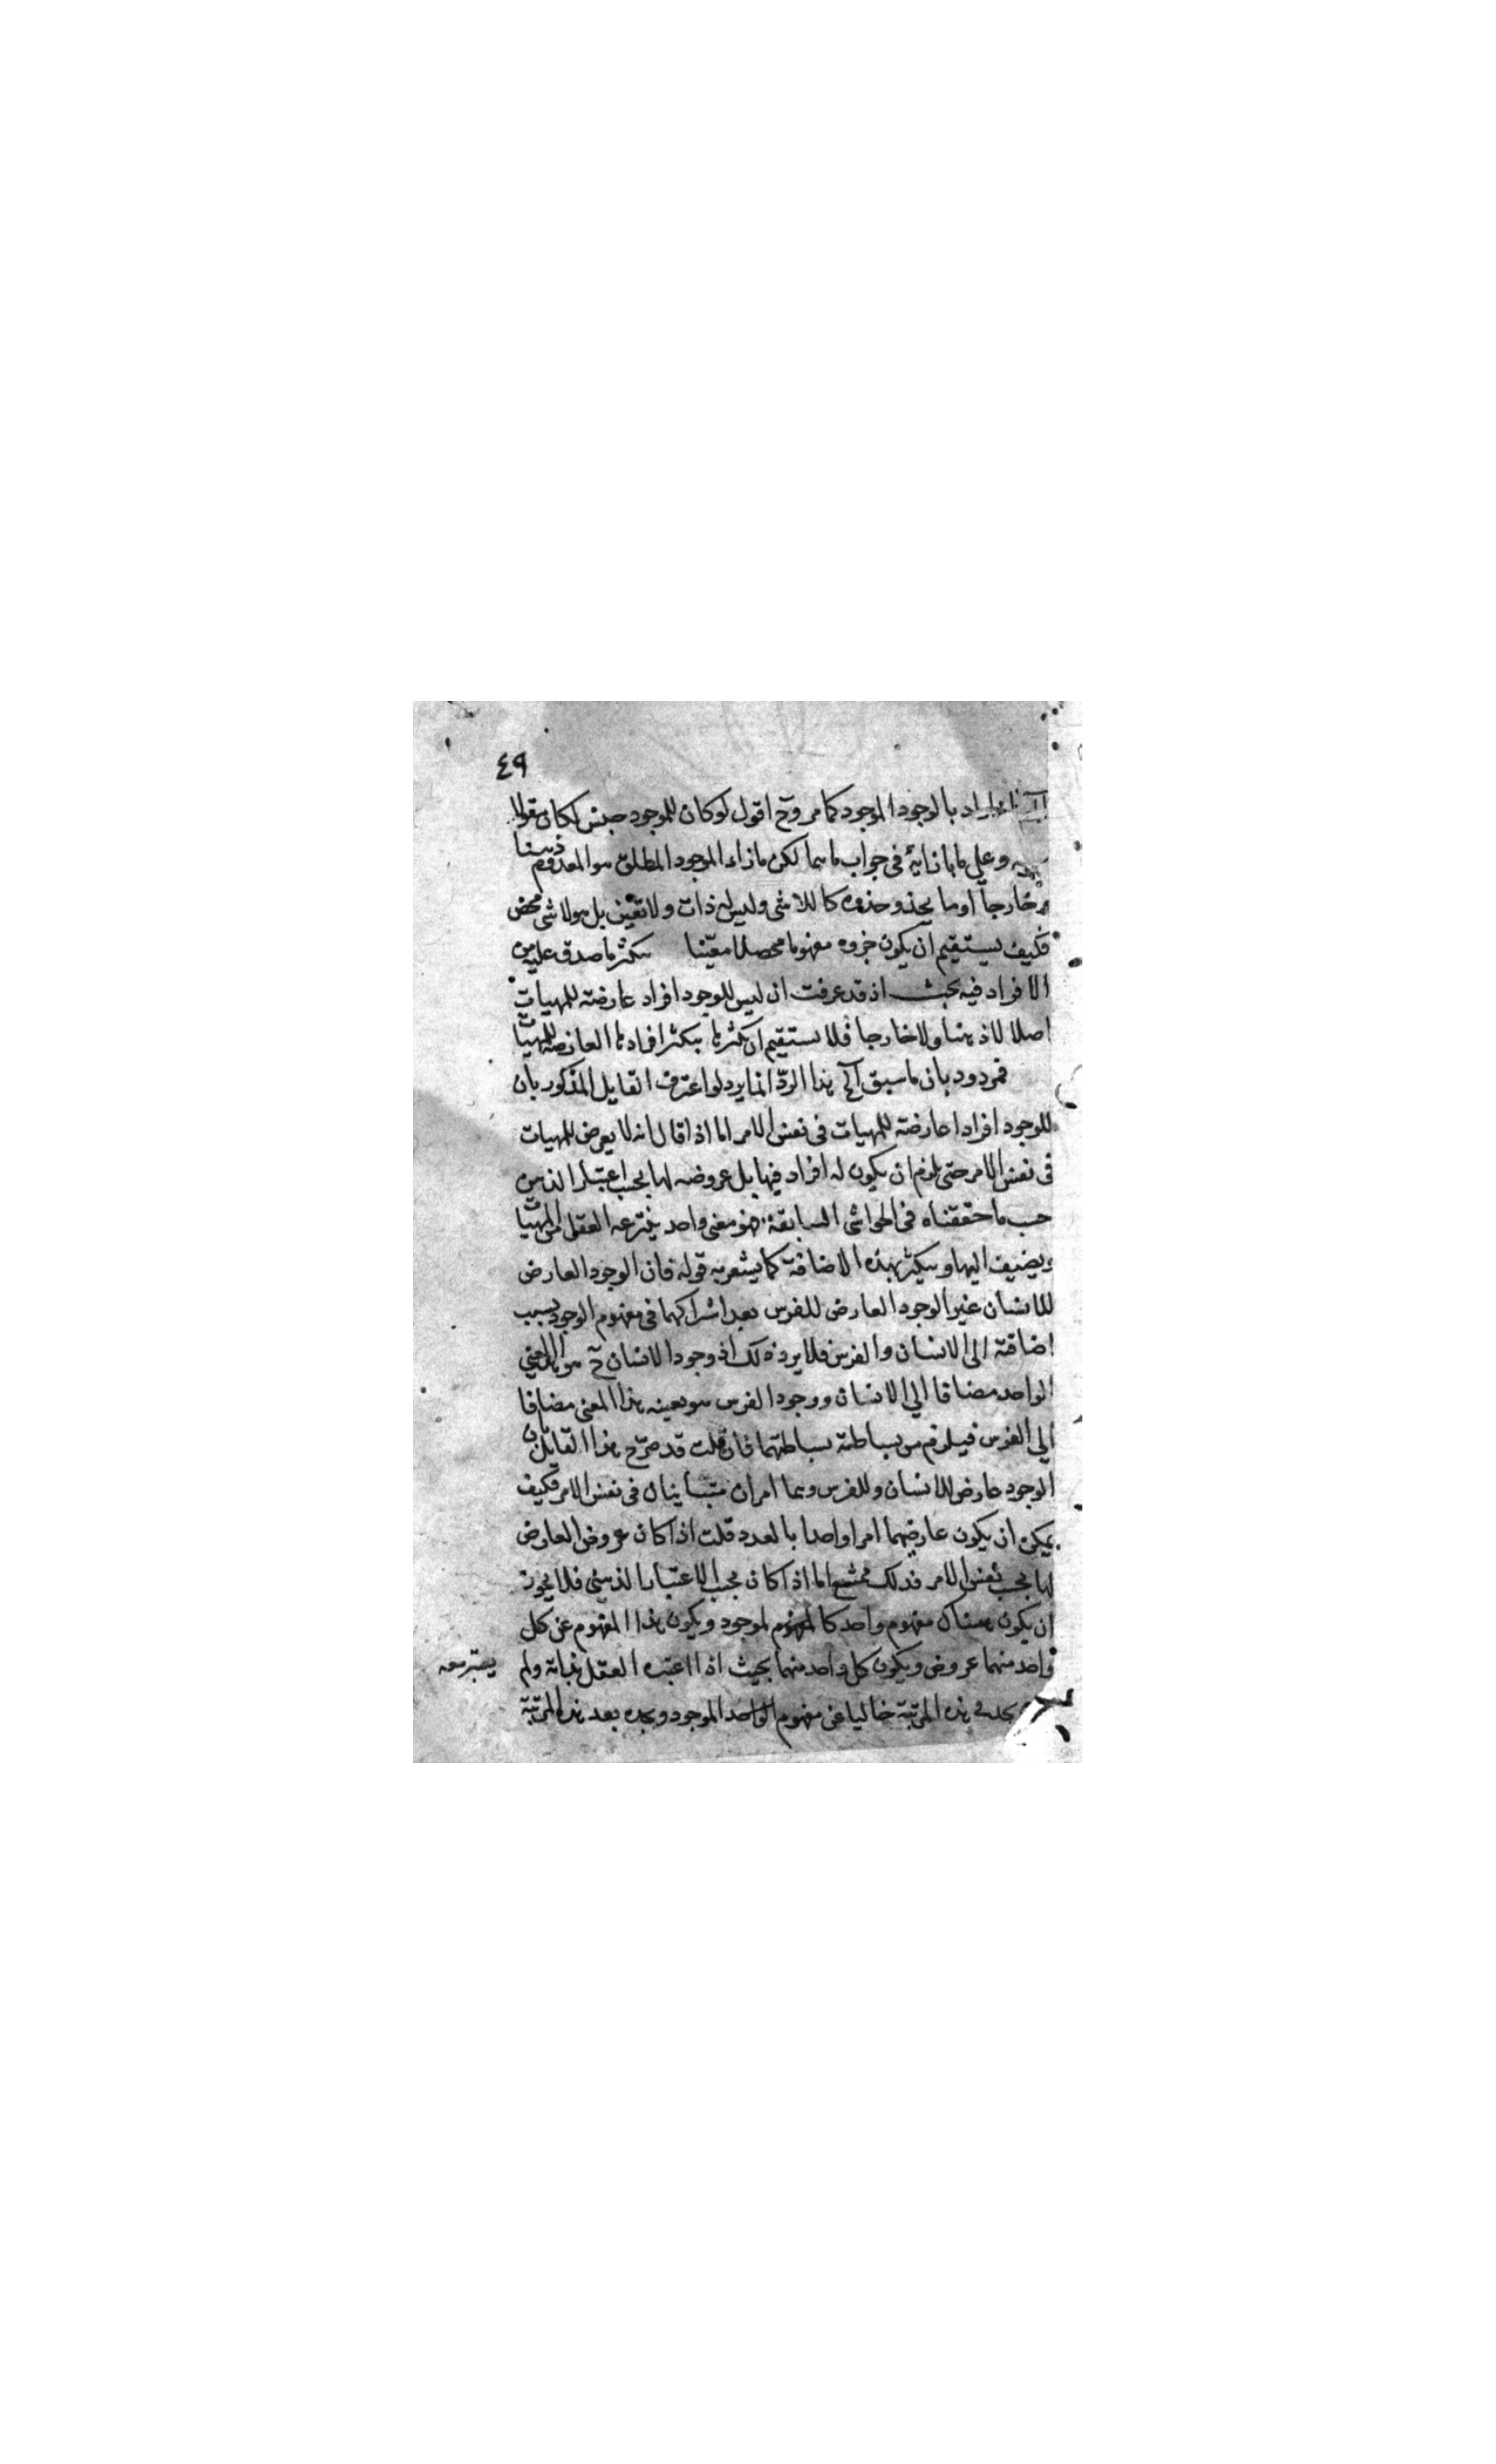 ٤٩
المراد بالوجود الموجود كما مر وح اقول لو كان للموجود جنس لكان مقولا
وعلي ما بازائه في جواب ما هما لكن ما زاء الموجود المطلق هو المعدوم ذهنا
وخارجا او ما يحذو حذوه كاللاشي وليس له ذات ولا تعين بل هو لا شي محض
فكيف يستقيم ان يكون جزوه مفهوما محصلا معينا يتكثر ما صدق عليه من
الافراد فيه بحث اذ قد عرفت ان ليس للوجود افراد عارضته للمهيات
اصلا لا ذهنا ولا خارجا فلا يستقيم ان تكثرها بتكثر افرادها العارضه للمهيات
فمردود بان ما سبق آلخ هذا الردّ انما يرد لو اعترف القايل المذكور بان
للوجود افرادا عارضته للمهيات في نفس الامر اما اذا قال انه لا يعرض للمهيات
في نفس الامر حتى يلزم ان يكون له افراد فيها بل عروضه لها بحسب اعتبار الذهن
حسب ما حققناه في الحواشي السابقة فهو معنى واحد ينتزعه العقل من المهيات
ويضيف اليها ويتكثر بهذه الاضافة كما يشعر به قوله فان الوجود العارض
للانسان غير الوجود العارض للفرس بعد اشراكهما في مفهوم الوجود بسبب
اضافته الى الانسان والفرس فلا يرد ذلك اذ وجود الانسان ح هو هذا المعني
الواحد مضافا الي الانسان ووجود الفرس هو بعينه هذا المعنى مضافا
الي الفرس فيلزم من بساطته بساطتهما فان قلت قد صرّح هذا القائل بان
الوجود عارض للانسان وللفرس وهما امران متباينان في نفس الامر فكيف
يمكن ان يكون عارضهما امرا واحدا بالعدد قلت اذا كان عروض العارض
لها بحسب نفس الامر فذلك ممتنع اما اذا كان بحسب الاعتبار الذهني فلا يجوز
ان يكون هناك مفهوم واحد كالمفهوم لموجود ويكون هذا المفهوم عن كل
واحد منهما عروض ويكون كل واحد منهما بحيث اذا اعتبره العقل بذاته ولم يعتبر معه
يجده في هذه المرتبة خاليا عن مفهوم الواحد الموجود ويجده بعد هذه المرتبة